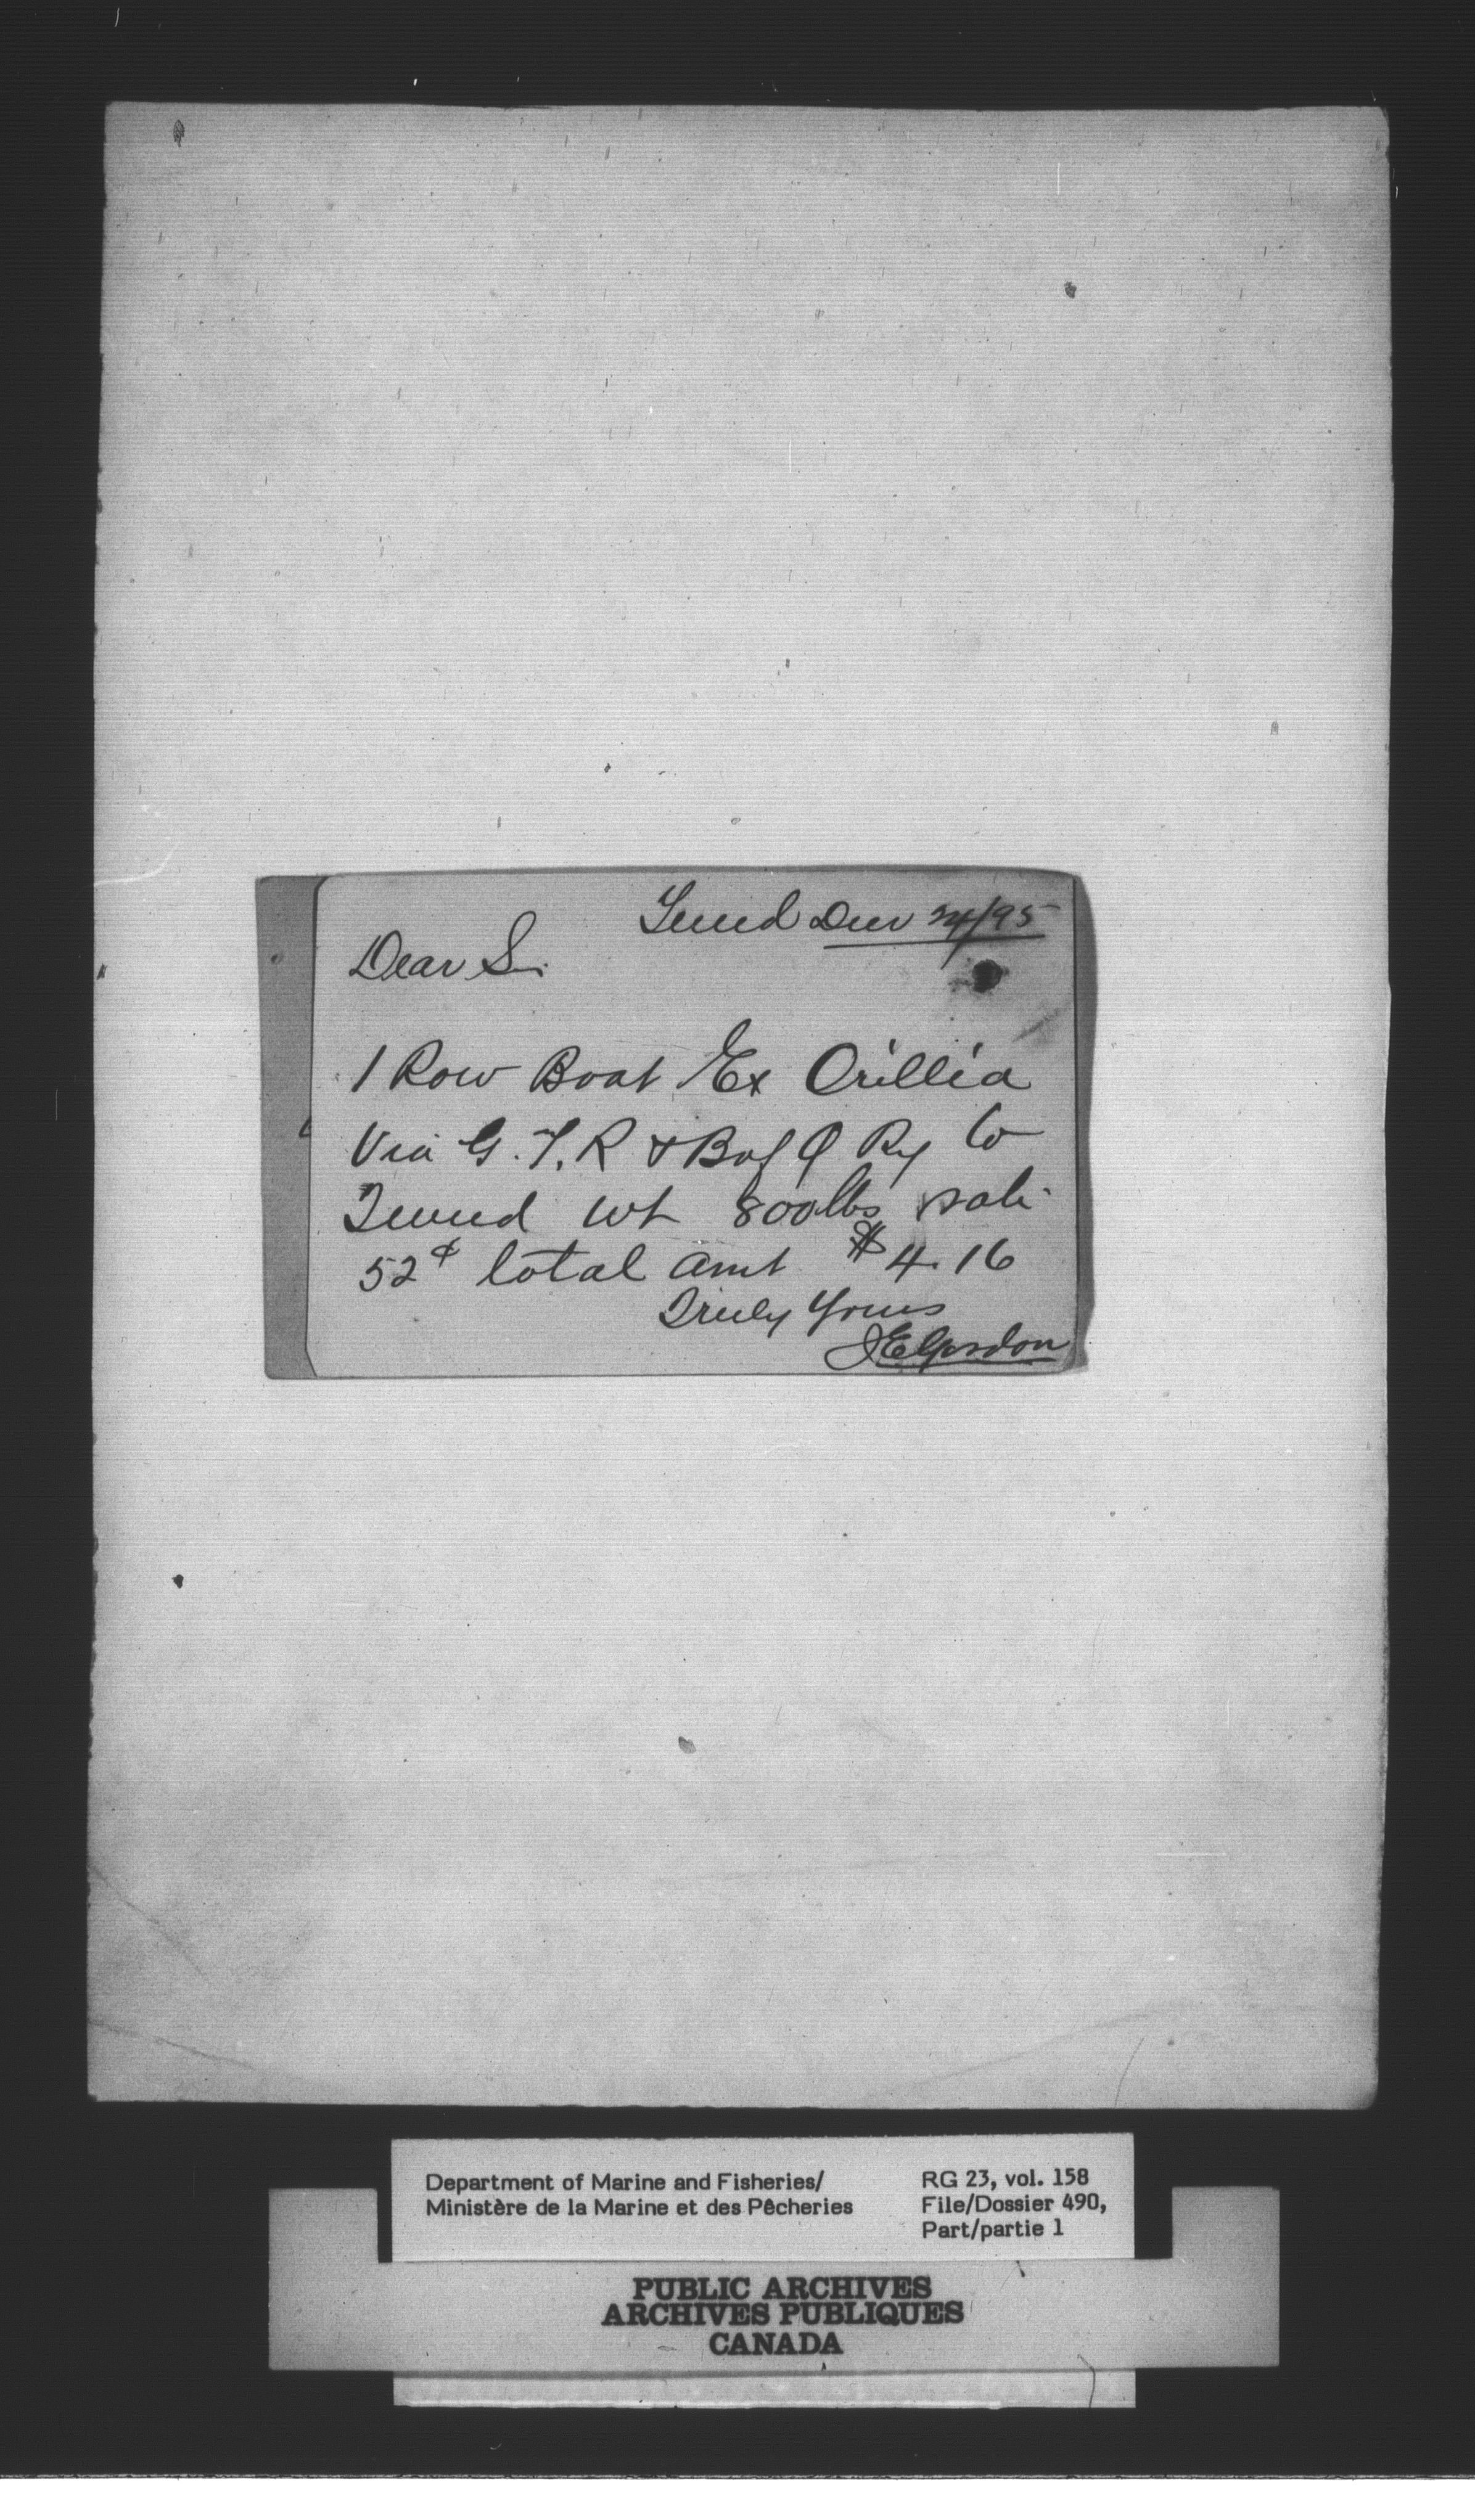 Tweed Dec 24/95
Dear Sir
1 Row Boat Ex Orillia
Via G.T.R & B of Q Ry Co
Tweed wt 800 lbs rate
52¢ total amt $4.16
Truly Yours
JE Gordon
Department of Marine and Fisheries/
Ministère de la Marine et des Pêcheries
RG 23, vol. 158
File/Dossier 490,
Part/partie 1
PUBLIC ARCHIVES
ARCHIVES PUBLIQUES
CANADA